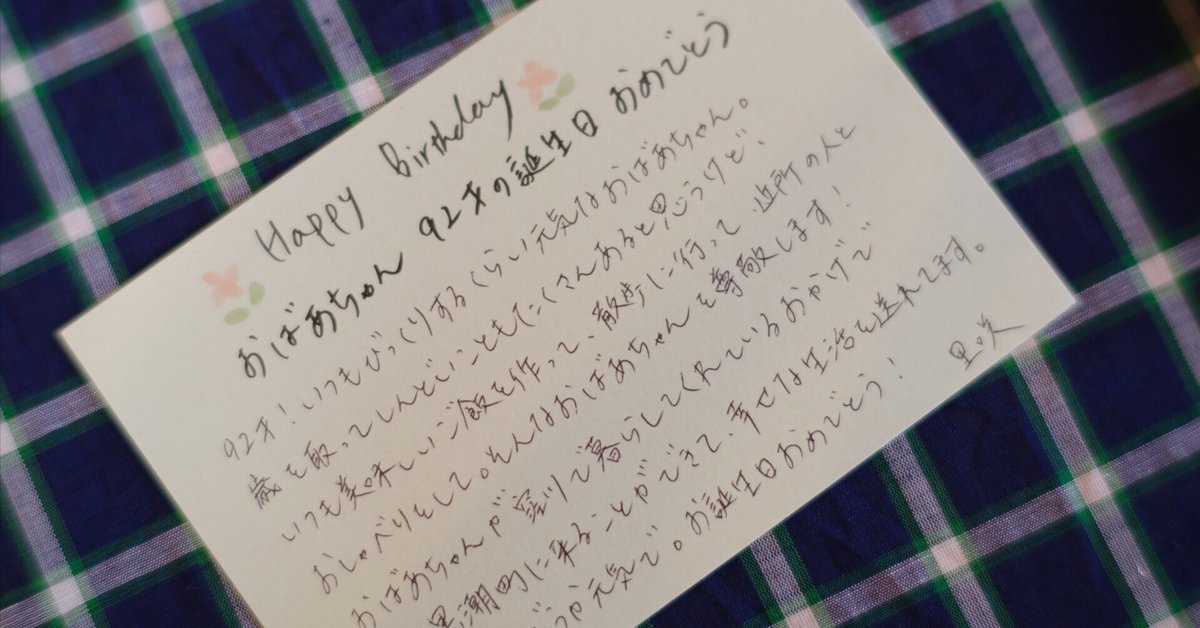 Happy Birthday
おばあちゃん 92才の誕生日 おめでとう
92才！いつもびっくりするくらい元気なおばあちゃん。
歳を取ってしんどいこともたくさんあると思うけど、
いつも美味しいご飯を作って、散歩に行って、近所の人と
おしゃべりをして。そんなおばあちゃんを尊敬します！
おばあちゃんが窪川で暮らしてくれているおかげで
黒潮町に来ることができて、幸せな生活を送れてます。
元気で。お誕生日おめでとう！
里咲